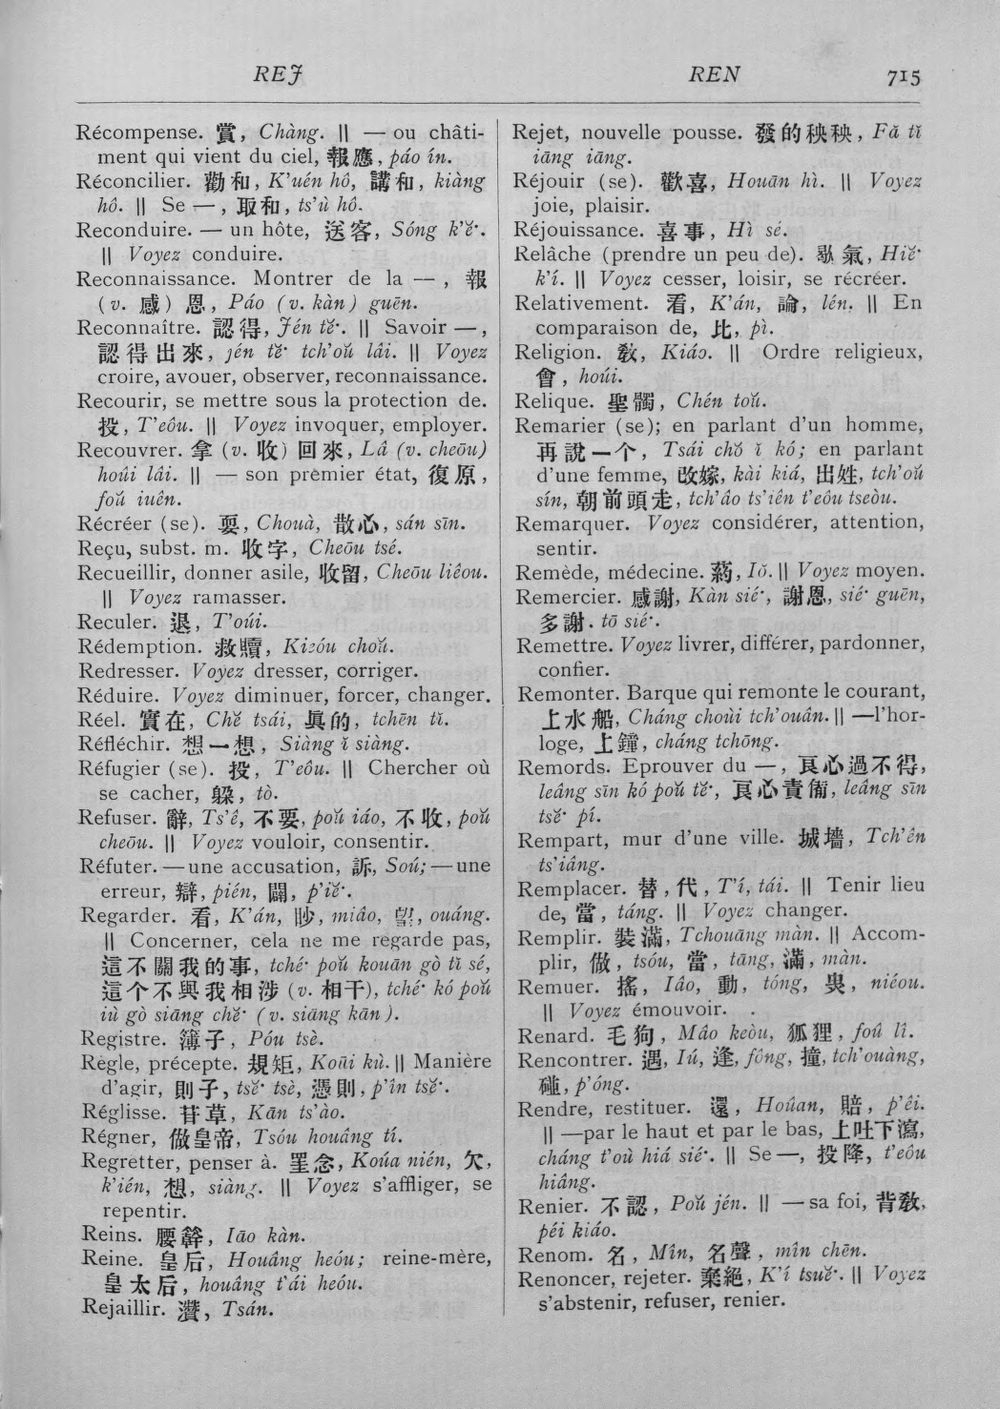 REJ
REN
715
Récompense. 賞, Chàng. || — ou châti-
ment qui vient du ciel, 報應, páo ín.
Réconcilier. 勸和, K'uén hô, 講和, kiàng
hô. || Se —, 取和, ts'ù hô.
Reconduire. — un hôte, 送客, Sóng k'ĕ·.
|| Voyez conduire.
Reconnaissance. Montrer de la —, 報
(v. 感) 恩, Páo (v. kàn) guēn.
Reconnaître. 認得, Jén tĕ·. || Savoir —,
認得出來, jén tĕ· tch'oŭ lâi. || Voyez
croire, avouer, observer, reconnaissance.
Recourir, se mettre sous la protection de.
投, T'eôu. || Voyez invoquer, employer.
Recouvrer. 拿 (v. 收) 回來, Lâ (v. cheōu)
hoûi lâi. || — son premier état, 復原,
foŭ iuên.
Récréer (se). 耍, Chouà, 散心, sán sīn.
Reçu, subst. m. 收字, Cheōu tsé.
Recueillir, donner asile, 收留, Cheōu liêou.
|| Voyez ramasser.
Reculer. 退, T'oúi.
Rédemption. 救贖, Kieóu choŭ.
Redresser. Voyez dresser, corriger.
Réduire. Voyez diminuer, forcer, changer.
Réel. 實在, Chĕ tsái, 眞的, tchēn tĭ.
Réfléchir. 想一想, Siàng ĭ siàng.
Réfugier (se). 投, T'eôu. || Chercher où
se cacher, 躱, tò.
Refuser. 辭, Ts'ê, 不要, poŭ iáo, 不收, poŭ
cheōu. || Voyez vouloir, consentir.
Réfuter. — une accusation, 訴, Soú; — une
erreur, 辯, pién, 闢, p'iĕ·.
Regarder. 看, K'án, 眇, miâo, 望, ouáng.
|| Concerner, cela ne me regarde pas,
這不關我的事, tché· poŭ kouān gò tĭ sé,
這个不與我相涉 (v. 相干), tché· kó poŭ
iù gò siāng chĕ· (v. siāng kān).
Registre. 簿子, Póu tsè.
Règle, précepte. 規矩, Koūi kù. || Manière
d'agir, 則子, tsĕ· tsè, 憑則, p'in tsĕ·.
Réglisse. 苷草, Kān ts'ào.
Régner, 做皇帝, Tsóu houâng tí.
Regretter, penser à. 罣念, Koúa nién, 欠,
k'ién, 想, siàng. || Voyez s'affliger, se
repentir.
Reins. 腰桼, Iāo kàn.
Reine. 皇后, Houâng heóu; reine-mère,
皇太后, houâng t'ái heóu.
Rejaillir. 灒, Tsán.
Rejet, nouvelle pousse. 發的秧秧, Fă tĭ
iāng iāng.
Réjouir (se). 歡喜, Houān hì. || Voyez
joie, plaisir.
Réjouissance. 喜事, Hì sé.
Relâche (prendre un peu de). 歇氣, Hiĕ·
k'í. || Voyez cesser, loisir, se récréer.
Relativement. 看, K'án, 論, lén. || En
comparaison de, 比, pì.
Religion. 教, Kiáo. || Ordre religieux,
會, hoúi.
Relique. 聖髑, Chén toŭ.
Remarier (se); en parlant d'un homme,
再說一个, Tsái chŏ ĭ kó; en parlant
d'une femme, 改嫁, kài kiá, 出姓, tch'oŭ
sín, 朝前頭走, tch'âo ts'iên t'eôu tseòu.
Remarquer. Voyez considérer, attention,
sentir.
Remède, médecine. 葯, Iŏ. || Voyez moyen.
Remercier. 感謝, Kàn sié·, 謝恩, sié· guēn,
多謝. tō sié·.
Remettre. Voyez livrer, différer, pardonner,
confier.
Remonter. Barque qui remonte le courant,
上水船, Cháng choùi tch'ouân. || —l'hor-
loge, 上鐘, cháng tchōng.
Remords. Eprouver du —, 良心過不得,
leâng sīn kó poŭ tĕ·, 良心責俻, leâng sīn
tsĕ· pí.
Rempart, mur d'une ville. 城墻, Tch'ên
ts'iâng.
Remplacer. 替, 代, T'í, tái. || Tenir lieu
de, 當, táng. || Voyez changer.
Remplir. 裝滿, Tchouāng màn. || Accom-
plir, 做, tsóu, 當, tāng, 滿, màn.
Remuer. 搖, Iâo, 動, tóng, 㚻, niéou.
|| Voyez émouvoir.
Renard. 毛狗, Mâo keòu, 狐狸, foû lî.
Rencontrer. 遇, Iú, 逢, fông, 撞, tch'ouàng,
碰, p'óng.
Rendre, restituer. 還, Hoûan, 賠, p'êi.
|| —par le haut et par le bas, 上吐下瀉,
cháng t'où hiá sié·. || Se—, 投降, t'eôu
hiâng.
Renier. 不認, Poŭ jén. || — sa foi, 背教,
péi kiáo.
Renom. 名, Mîn, 名聲, mîn chēn.
Renoncer, rejeter. 棄絕, K'í tsuĕ·. || Voyez
s'abstenir, refuser, renier.